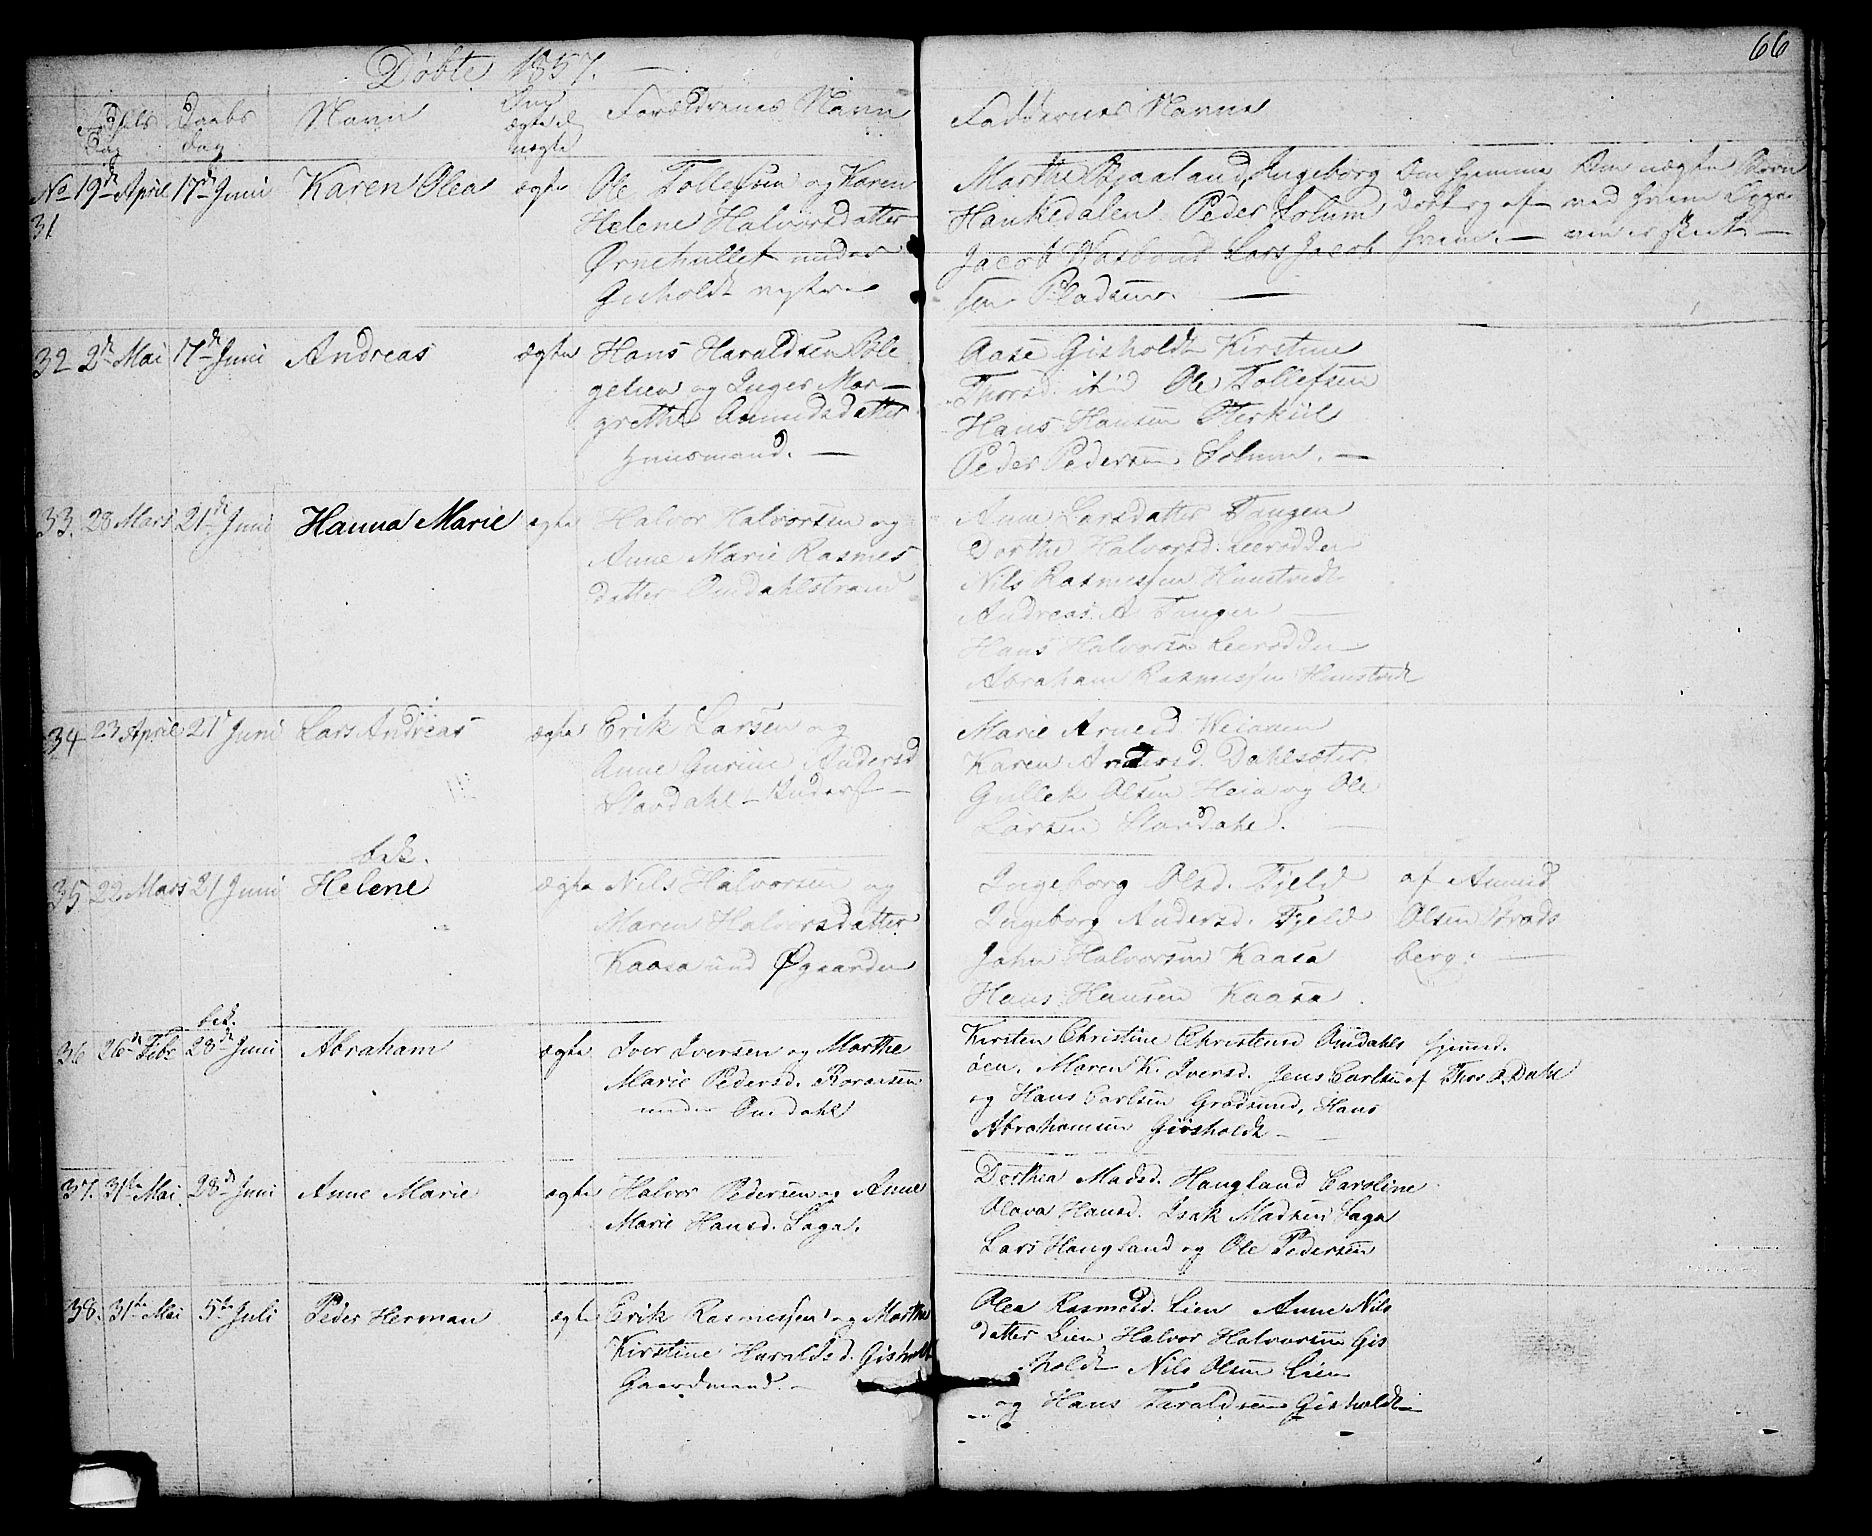 66
Døbte 1857.
Fødsels Dag
Daabs dag
Navn
Om ægte el uægte
Forældrenes Navn
Faddernes Navne
Om hjemme Døbt og af hvem. —
No 31 19de April 17de Juni Karen Olea ægte
Ole Tollefsen og Karen
Helene Halvorsdatter
Ørnehullet under
Gisholdt
Marthe Bjaaland, Ingeborg
Haukedalen Peder Solum
Jacob Lars Jacob
sen Pladsen. —
32 2de Mai 17de Juni Andreas ægte
Hans Haraldsen Bøle
gelien og Inger Mar—
grethe Amundsdatter
Huusmand. —
Aase Gisholdt Kirstine
Thorsd. ibid Ole Tollefsen
Hans Hansen Oterkiil
Peder Pedersen Solum. —
33. 28 Mars 21de Juni Hanna Marie ægte
Halvor Halvorsen og
Anne Marie Rasmes
datter Omdahlstrand
Anne Larsdatter Tangen
Dorthe Halvorsd. Leerodden
Nils Rasmessen Hamstvedt
Andreas A Tangen —
Hans Halvorsen Leerodden
Abraham Rasmessen
34 23 April 21de Juni Lars Andreas ægte
Erik Larsen og
Anne Gurine Andersd
Slavdahl
Marie Arnesd
Karen Andersd. Dahlsæter
Gullek Olsen Heia og Ole
Larsen Slavdahl. —
35 22 Mars 21 Juni bek. Helene ægte
Nils Halvorsen og
Maren Halvorsdatter
Kaasa und Øgaarden
Ingeborg Olsd. Fjeld
Ingeborg Andersd. Fjeld
John Halvorsen Kaasa
Hans Hansen Kaasa.
af Amund
Olsen Brads
berg. —
36 26de Febr bek. 28de Juni Abraham ægte
Iver Iversen og Marthe
Marie Pedersd. Roraasen
under Omdahl
Kirsten Christine Christensd Omdahls
øen. Maren K. Iversd. Jens Carlsen
og Hans Carlsen Grodsund, Hans
Abrahamsen Gisholdt —
hjemd.
af Thor P. Dahl
37. 31te Mai 28de Juni Anne Marie ægte
Halvor Pedersen og Anne
Marie Hansd. Saga.
Dorthea Madsd. Haugland Caroline
Olava Hansd. Isak Madsen Saga
Lars Haugland og Ole Pedersen
38. 31te Mai 5te Juli Peder Herman ægte
Erik Rasmessen og Marthe
Kirstine Haraldsd. Gisholt
Gaardmand. —
Olea Rasmesd. Lien Anne Nils
datter Lien Halvor Halvorsen Gis
holdt Nils Olsen Lien
og Hans Taraldsen Gisholdt —